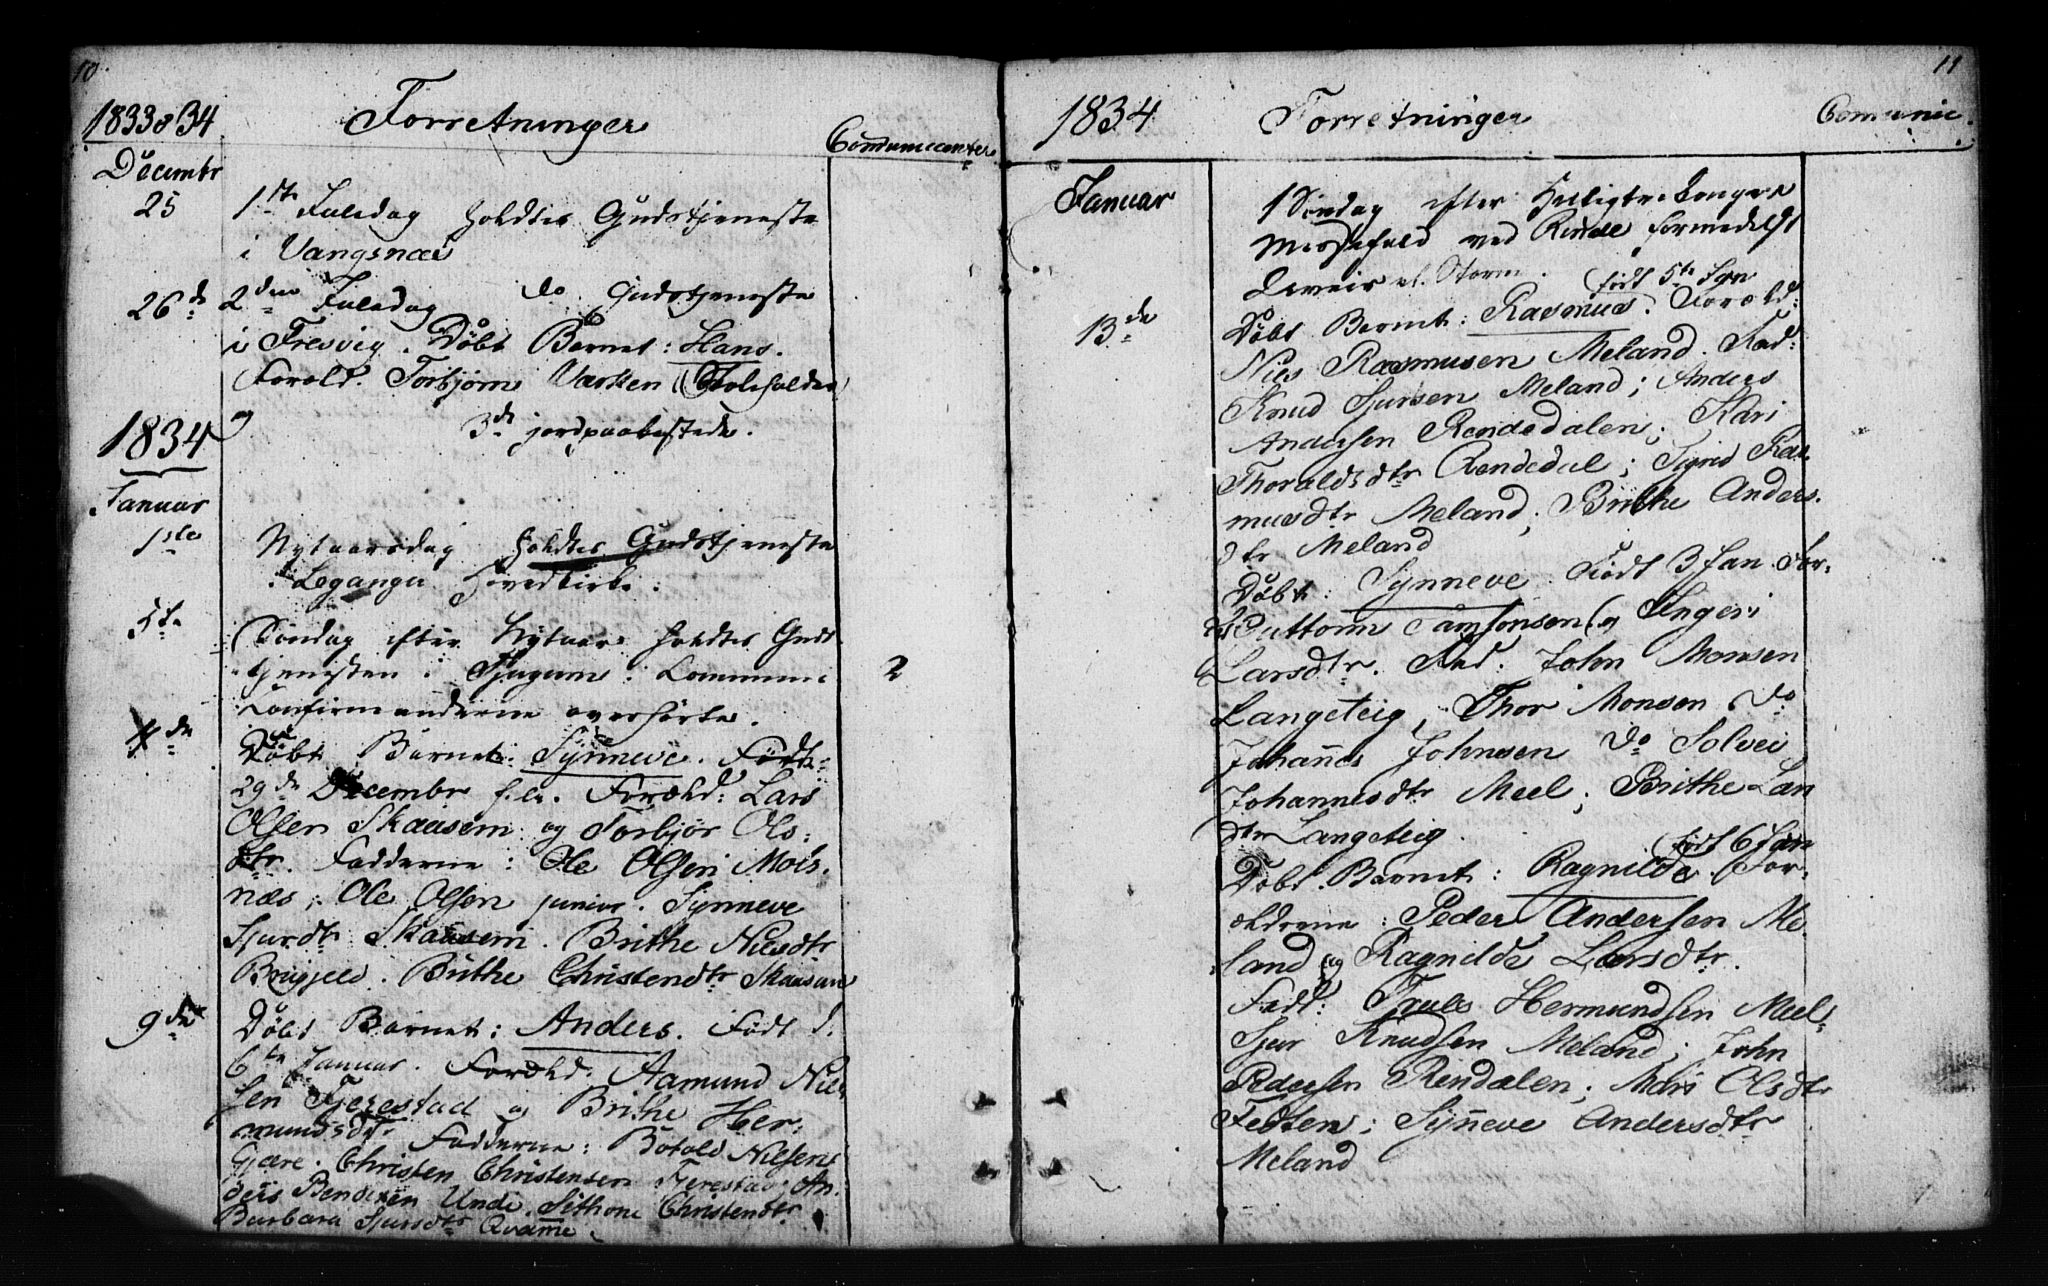 10
1833 & 34
Forretninger
Communicenter
Decembr
25
1ste Juledag holdtes Gudstjeneste
i Vangsnæs
26de
2den Juledag do Gudstjeneste
i Fresvig. Døbt Barnet: Hans.
Foræld. Torbjørn Varken
og
3de
1834
Januar
1ste
Nytaarsdag holdtes Gudstjeneste
i Leganger Hovedkirke.
5te
Søndag efter Nytaar holdtes Guds
tjenesten i Tjugum.
2
Confirmanderne overhørte.
Døbt Barnet: Synneve. Født
29de Decembr f.A. Foræld: Lars
Olsen Skaasem og Torbjør Ols-
dtr. Fadderne: Ole Olsen Mois-
næs; Ole Olsen junior. Synneve
Sjurdtr Skaasem. Brithe Nielsdtr
Brithe Christendtr Skaasem
9de
Døbt Barnet: Anders. Født d.
6te Januar. Foræld: Aamund Niel-
sen Fjerestad og Brithe Her-
mundsdtr Fadderne: Botold Nielsen
Gjære. Christen Christensen Fjerestad. An-
ders Bendixen Unde. Sithone Christendtr.
Barbara Sjursdtr Qvamme.
11
1834
Forretninger
Comunic.
Januar
1 Søndag efter Helligtrekonger
Messefald ved Rinde formedelst
Uveir og Storm.
13de
født 5te Jan
Døbt Barnet: Rasmus. Foræld:
Niels Rasmusen Meland. Fad:
Knud Sjursen Meland; Anders
Andersen Rendedalen; Kari
Thoraldsdtr Rendedal; Sigrid Ras
musdtr Meland; Brithe Anders-
dtr Meland
Døbt: Synneve. Født 3 Jan. For-
Guttorm Samsonsen og Ingeri
Larsdtr. Fad. John Monsen
Langeteig, Thor Monsen do
Johannes Johnsen do Solvei
Johannesdtr Meel; Brithe Lars
dtr Langeteig.
født 6 Jan
Døbt Barnet: Ragnilde. For-
ældrene: Peder Andersen Me-
land og Ragnilde Larsdtr.
Fadd: Hermundsen Meel-
Sjur Knudsen Meland; John
Pedersen Rendalen; Olsdtr
Fedten; Synneve Andersdtr
Meland